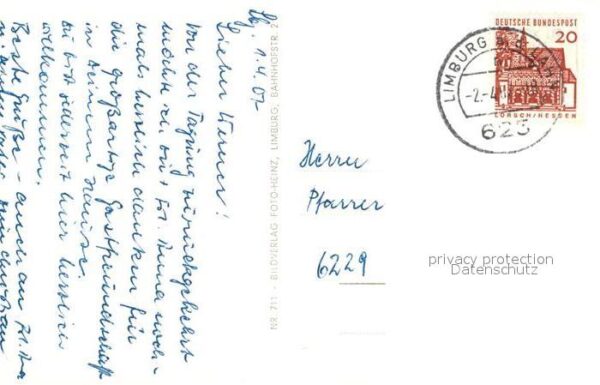 Lieber Werner!
Von der Tagung zurückgekehrt
möchte ich Dir + Frl. Anna noch-
mals herzlich danken für
die großartige Gastfreundschaft
in Deinem Hause.
Du bist jederzeit hier herzlich
willkommen.
Beste Grüße - auch an Frl.
NR. 711 - BILDVERLAG FOTO-HEINZ, LIMBURG, BAHNHOFSTR. 2
DEUTSCHE BUNDESPOST
20
LORSCH/HESSEN
LIMBURG a. d. LAHN
-2.-4.
625
Herrn
Pfarrer
6229
privacy protection
Datenschutz